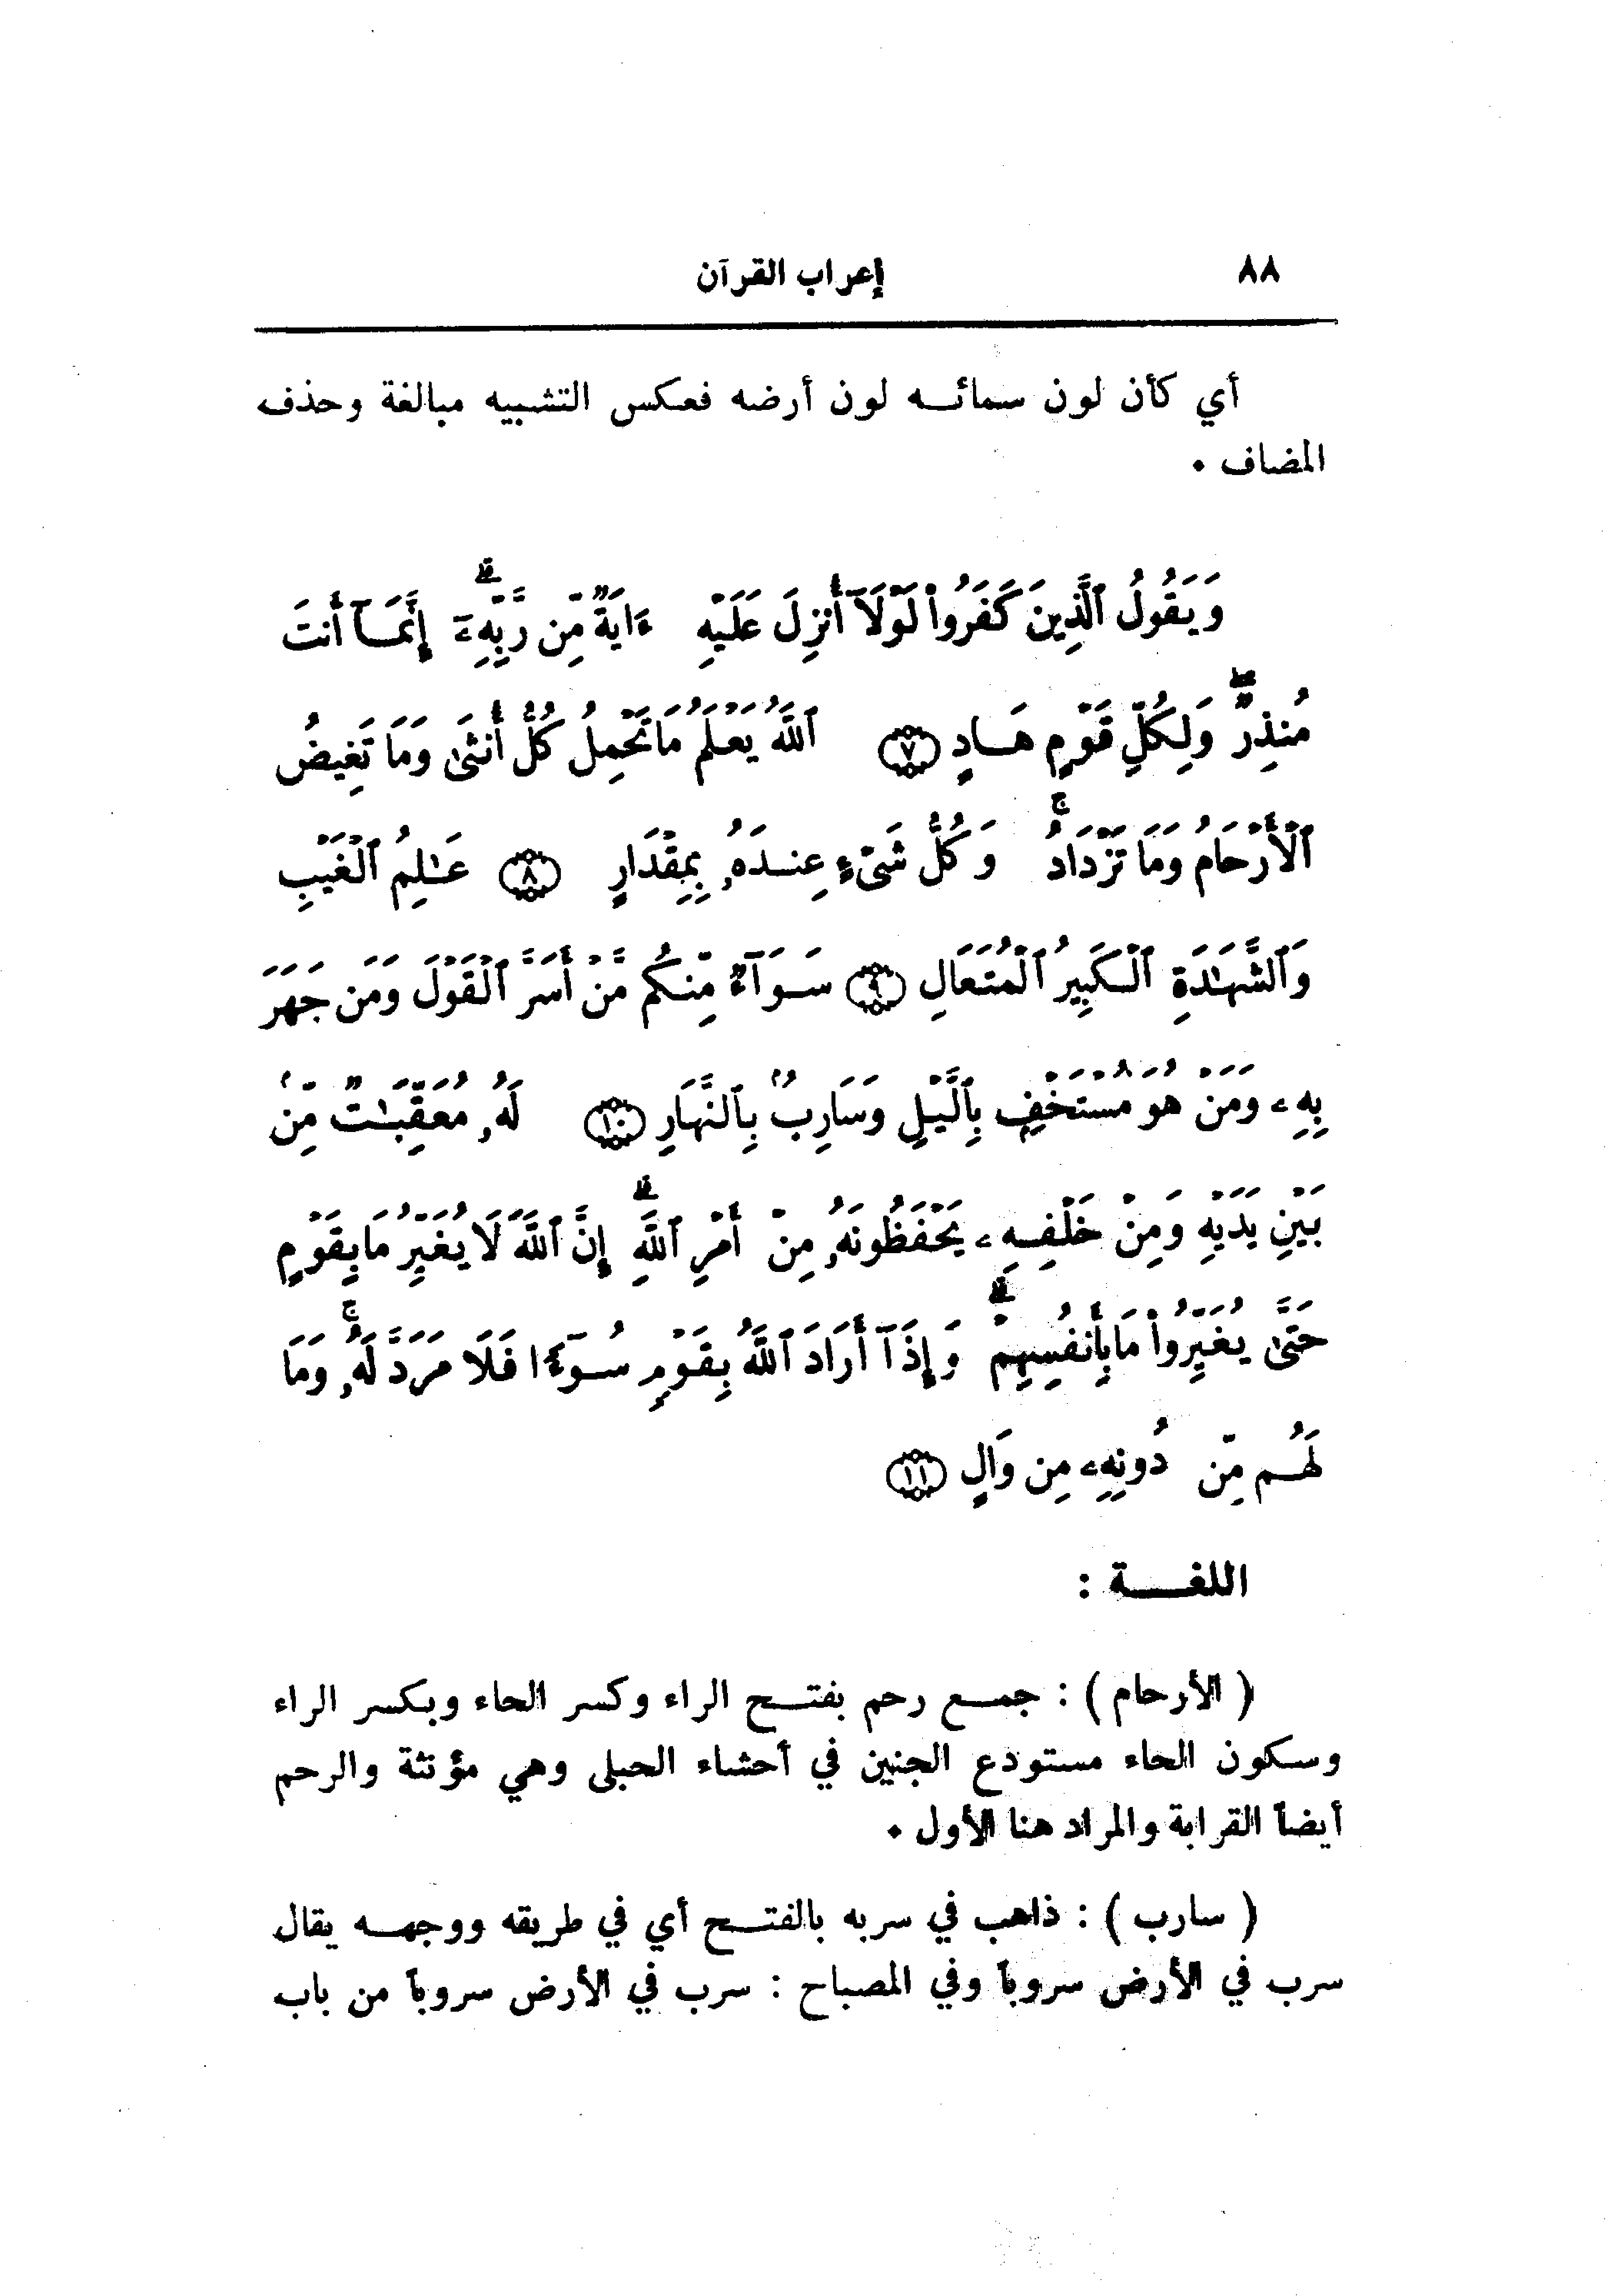 ٨٨ إعراب القرآن
أي كأن لون سمائه لون أرضه فعكس التشبيه مبالغة وحذف
المضاف ٠
وَيَقُولُ ٱلَّذِينَ كَفَرُوا۟ لَوْلَآ أُنزِلَ عَلَيْهِ ءَايَةٌ مِّن رَّبِّهِۦٓ ۗ إِنَّمَآ أَنتَ
مُنذِرٌ ۖ وَلِكُلِّ قَوْمٍ هَادٍ ﴿٧﴾ ٱللَّهُ يَعْلَمُ مَا تَحْمِلُ كُلُّ أُنثَىٰ وَمَا تَغِيضُ
ٱلْأَرْحَامُ وَمَا تَزْدَادُ ۚ وَكُلُّ شَىْءٍ عِندَهُۥ بِمِقْدَارٍ ﴿٨﴾ عَـٰلِمُ ٱلْغَيْبِ
وَٱلشَّهَـٰدَةِ ٱلْكَبِيرُ ٱلْمُتَعَالِ ﴿٩﴾ سَوَآءٌ مِّنكُم مَّنْ أَسَرَّ ٱلْقَوْلَ وَمَن جَهَرَ
بِهِۦ وَمَنْ هُوَ مُسْتَخْفٍۭ بِٱلَّيْلِ وَسَارِبٌۢ بِٱلنَّهَارِ ﴿١٠﴾ لَهُۥ مُعَقِّبَـٰتٌ مِّنۢ
بَيْنِ يَدَيْهِ وَمِنْ خَلْفِهِۦ يَحْفَظُونَهُۥ مِنْ أَمْرِ ٱللَّهِ ۗ إِنَّ ٱللَّهَ لَا يُغَيِّرُ مَا بِقَوْمٍ
حَتَّىٰ يُغَيِّرُوا۟ مَا بِأَنفُسِهِمْ ۗ وَإِذَآ أَرَادَ ٱللَّهُ بِقَوْمٍ سُوٓءًا فَلَا مَرَدَّ لَهُۥ ۚ وَمَا
لَهُم مِّن دُونِهِۦ مِن وَالٍ ﴿١١﴾
اللغة :
( الأرحام ) : جمع رحم بفتح الراء وكسر الحاء وبكسر الراء
وسكون الحاء مستودع الجنين في أحشاء الحبلى وهي مؤنثة والرحم
أيضاً القرابة والمراد هنا الأول ٠
( سارب ) : ذاهب في سربه بالفتح أي في طريقه ووجهه يقال
سرب في الأرض سروباً وفي المصباح : سرب في الأرض سروباً من باب